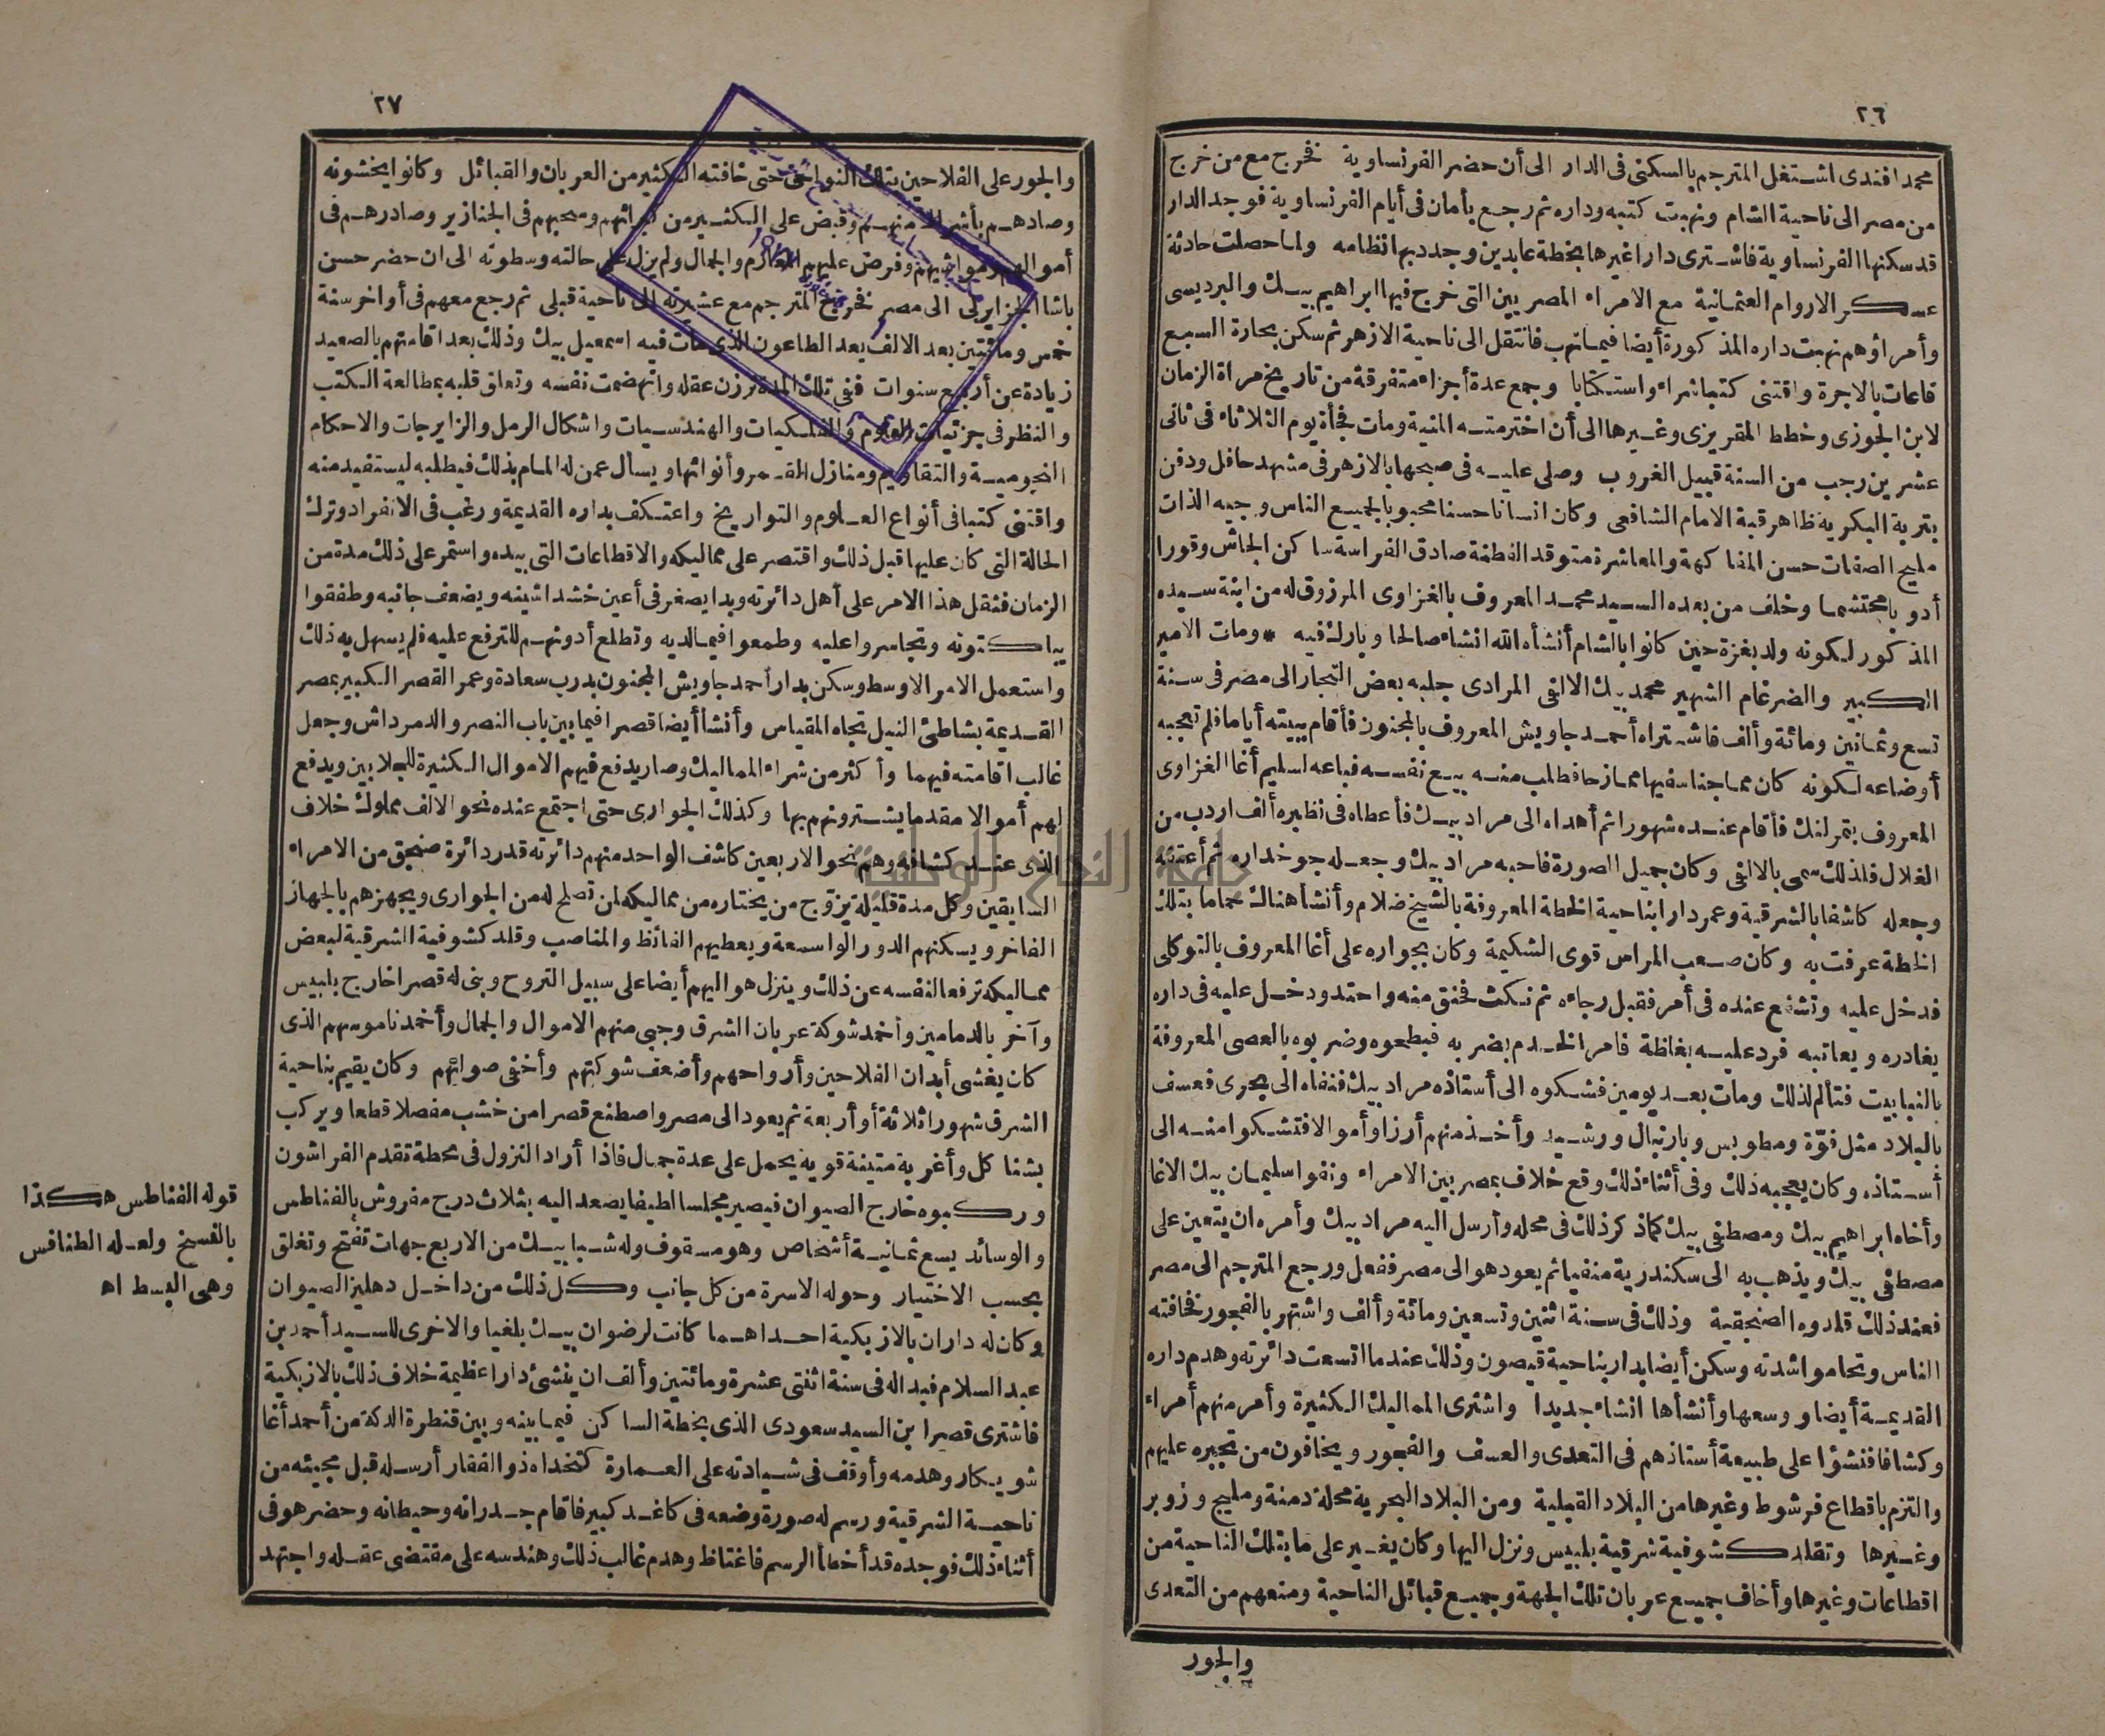 ٢٦
محمد افندى اشتغل المترجم بالسكنى فى الدار الى أن حضر الفرنساوية فخرج مع من خرج
من مصر الى ناحية الشام ونهبت كتبه وداره ثم رجع بأمان فى أيام الفرنساوية فوجد الدار
قد سكنها الفرنساوية فاشترى دارا غيرها بخطة عابدين وجدد بها نظامه ولما حصلت حادثة
عسكر الاروام العثمانية مع الامراء المصريين التى خرج فيها ابراهيم بيك والبرديسى
وأمراؤهم نهبت داره المذكورة أيضا فيما نهب فانتقل الى ناحية الازهر ثم سكن بحارة السبع
قاعات بالاجرة واقتنى كتبا شراء واستكتابا وجمع عدة أجزاء متفرقة من تاريخ مرآة الزمان
لابن الجوزى وخطط المقريزى وغيرها الى أن اخترمته المنية ومات فجأة يوم الثلاثاء فى ثانى
عشرين رجب من السنة قبيل الغروب وصلى عليه فى صبحها بالازهر فى مشهد حافل ودفن
بتربة البكرية ظاهر قبة الامام الشافعى وكان انسانا حسنا محبوبا لجميع الناس وجيه الذات
مليح الصفات حسن المفاكهة والمعاشرة متوقد الفطنة صادق الفراسة ساكن الجاش وقورا
أدوبا محتشما وخلف من بعده السيد محمد المعروف بالغزاوى المرزوق له من ابنة سيده
المذكور لكونه ولد بغزة حين كانوا بالشام أنشأه الله انشاء صالحا وبارك فيه * ومات الامير
الكبير والضرغام الشهير محمد بيك الالفى المرادى جلبه بعض التجار الى مصر فى سنة
تسع وثمانين ومائة وألف فاشتراه أحمد جاويش المعروف بالمجنون فأقام ببيته أياما فلم تعجبه
أوضاعه لكونه كان مماجنا سفيها ممازحا فطلب منه بيع نفسه فباعه لسليم أغا الغزاوى
المعروف بتمرلنك فأقام عنده شهورا ثم أهداه الى مراد بيك فأعطاه فى نظيره ألف اردب من
الغلال فلذلك سمى بالالفى وكان جميل الصورة فاحبه مراد بيك وجعله جوخداره ثم أعتقه
وجعله كاشفا بالشرقية وعمر دارا بناحية الخطة المعروفة بالشيخ ضلام وأنشأ هناك حماما بتلك
الخطة عرفت به وكان صعب المراس قوى الشكيمة وكان بجواره على أغا المعروف بالتوكلى
فدخل عليه وتشفع عنده فى أمر فقبل رجاءه ثم نكث فحنق منه واحتد ودخل عليه فى داره
يغادره ويعاتبه فرد عليه بغلظة فامر الخدم بضربه فبطحوه وضربوه بالعصى المعروفة
بالنبابيت فتألم لذلك ومات بعد يومين فشكوه الى أستاذه مراد بيك فنفاه الى بحرى فعسف
بالبلاد مثل فوّة ومطوبس وبارنبال ورشيد وأخذ منهم أرزا وأموالا فتشكوا منه الى
أستاذه وكان يعجبه ذلك وفى أثناء ذلك وقع خلاف بمصر بين الامراء ونفوا سليمان بيك الاغا
وأخاه ابراهيم بيك ومصطفى بيك كما ذكر ذلك فى محله وأرسل اليه مراد بيك وأمره ان يتعين على
مصطفى بيك ويذهب به الى سكندرية منفيا ثم يعود هو الى مصر ففعل ورجع المترجم الى مصر
فعند ذلك قلدوه الصنجقية وذلك فى سنة اثنين وتسعين ومائة وألف واشتهر بالفجور فخافته
الناس وتحاموا شدته وسكن أيضا بدار بناحية قيصون وذلك عندما اتسعت دائرته وهدم داره
القديمة أيضا ووسعها وأنشأها انشاء جديدا واشترى المماليك الكثيرة وأمر منهم أمراء
وكشافا فنشؤا على طبيعة أستاذهم فى التعدى والعسف والفجور ويخافون من تجبره عليهم
والتزم باقطاع فرشوط وغيرها من البلاد القبلية ومن البلاد البحرية محلة دمنة ومليج وزوبر
وغيرها وتقلد كشوفية شرقية بلبيس ونزل اليها وكان يغير على ما بتلك الناحية من
اقطاعات وغيرها وأخاف جميع عربان تلك الجهة وجميع قبائل الناحية ومنعهم من التعدى
والجور
٢٧
والجور على الفلاحين بتلك النواحى حتى خافته الكثير من العربان والقبائل وكانوا يخشونه
وصادهم بأشراك منهم وقبض على الكثير من كبرائهم وسحبهم فى الجنازير وصادرهم فى
أموالهم ومواشيهم وفرض عليهم المغارم والجمال ولم يزل على حالته وسطوته الى ان حضر حسن
باشا الجزايرلى الى مصر فخرج المترجم مع عشيرته الى ناحية قبلى ثم رجع معهم فى أواخر سنة
خمس ومائتين بعد الالف بعد الطاعون الذى مات فيه اسمعيل بيك وذلك بعد اقامتهم بالصعيد
زيادة عن أربع سنوات ففى تلك المدة ترزن عقله وانهضمت نفسه وتعلق قلبه بمطالعة الكتب
والنظر فى جزئيات العلوم والفلكيات والهندسيات واشكال الرمل والزايرجات والاحكام
النجومية والتقاويم ومنازل القمر وأنوائها ويسأل عمن له المام بذلك فيطلبه ليستفيد منه
واقتنى كتبا فى أنواع العلوم والتواريخ واعتكف بداره القديمة ورغب فى الانفراد وترك
الحالة التى كان عليها قبل ذلك واقتصر على مماليكه والاقطاعات التى بيده واستمر على ذلك مدة من
الزمان فثقل هذا الامر على أهل دائرته وبدا يصغر فى أعين خشداشينه ويضعف جانبه وطفقوا
يباكتونه وتجاسروا عليه وطمعوا فيما لديه وتطلع أدونهم للترفع عليه فلم يسهل به ذلك
واستعمل الامر الاوسط وسكن بدار أحمد جاويش المجنون بدرب سعادة وعمر القصر الكبير بمصر
القديمة بشاطئ النيل تجاه المقياس وأنشأ أيضا قصرا فيما بين باب النصر والدمرداش وجعل
غالب اقامته فيهما وأكثر من شراء المماليك وصار يدفع فيهم الاموال الكثيرة للجلابين ويدفع
لهم أموالا مقدما يشترونهم بها وكذلك الجوارى حتى اجتمع عنده نحو الالف مملوك خلاف
الذى عند كشافه وهم نحو الاربعين كاشف الواحد منهم دائرته قدر دائرة صنجق من الامراء
السابقين وكل مدة قليلة يزوج من يختاره من مماليكه لمن تصلح له من الجوارى ويجهزهم بالجهاز
الفاخر ويسكنهم الدور الواسعة ويعطيهم الفائظ والمناصب وقلد كشوفية الشرقية لبعض
مماليكه ترفعا لنفسه عن ذلك وينزل هو اليهم أيضا على سبيل التروح وبنى له قصرا خارج بلبيس
وآخر بالدمامين وأخمد شوكة عربان الشرق وجبى منهم الاموال والجمال وأخمد ناموسهم الذى
كان يغشى أبدان الفلاحين وأرواحهم وأضعف شوكتهم وأخفى صوائهم وكان يقيم بناحية
الشرق شهورا ثلاثة أو أربعة ثم يعود الى مصر واصطنع قصرا من خشب مفصلا قطعا ويركب
بشناكل وأغربة متينة قوية يحمل على عدة جمال فاذا أراد النزول فى محطة تقدم الفراشون
وركبوه خارج الصيوان فيصير مجلسا لطيفا يصعد اليه بثلاث درج مفروش بالفناطس
والوسائد يسع ثمانية أشخاص وهو مسقوف وله شبابيك من الاربع جهات تفتح وتغلق
بحسب الاختيار وحوله الاسرة من كل جانب وكل ذلك من داخل دهليز الصيوان
وكان له داران بالازبكية احداهما كانت لرضوان بيك بلغيا والاخرى للسيد أحمد بن
عبد السلام فبدا له فى سنة اثنتى عشرة ومائتين وألف ان ينشئ دارا عظيمة خلاف ذلك بالازبكية
فاشترى قصر ابن السيد سعودى الذى بخطة الساكن فيما بينه وبين قنطرة الدكة من أحمد أغا
شويكار وهدمه وأوقف فى شيادته على العمارة كتخداه ذو الفقار أرسله قبل مجيئه من
ناحية الشرقية ورسم له صورة وضعه فى كاغد كبير فاقام جدرانه وحيطانه وحضر هو فى
أثناء ذلك فوجده قد أخطأ الرسم فاغتاظ وهدم غالب ذلك وهندسه على مقتضى عقله واجتهد
قوله الفناطس هكذا
بالنسخ ولعله الطنافس
وهى البسط اه
جامعة النجاح الوطنية